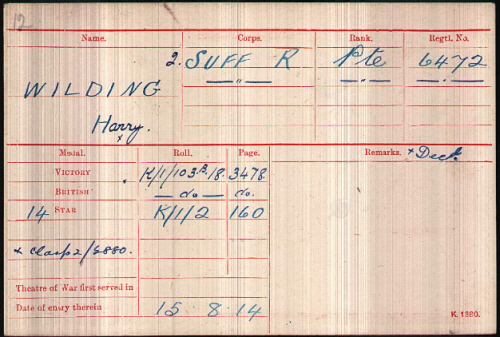 12
Name. Corps. Rank. Regtl. No.
2. SUFF R Pte 6472
WILDING — " — — " — — " —
Harry.
x
Medal. Roll. Page. Remarks. x Decd.
VICTORY K/1/103.B.18. 3478.
BRITISH — do — do.
14 STAR K/1/2 160
x Clasp 2/5880.
Theatre of War first served in
Date of entry therein 15 · 8 · 14
K. 1380.